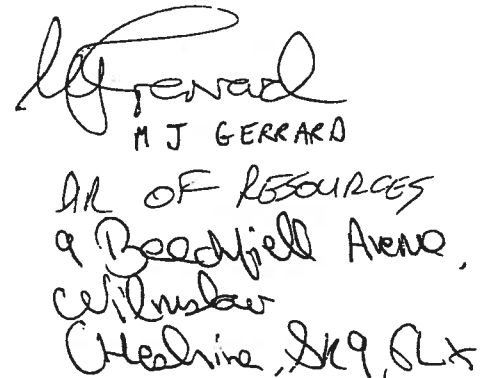 MJ Gerrard
M J GERRARD
DIR OF RESOURCES
9 Beechfield Avenue,
Wilmslow
Cheshire, SK9